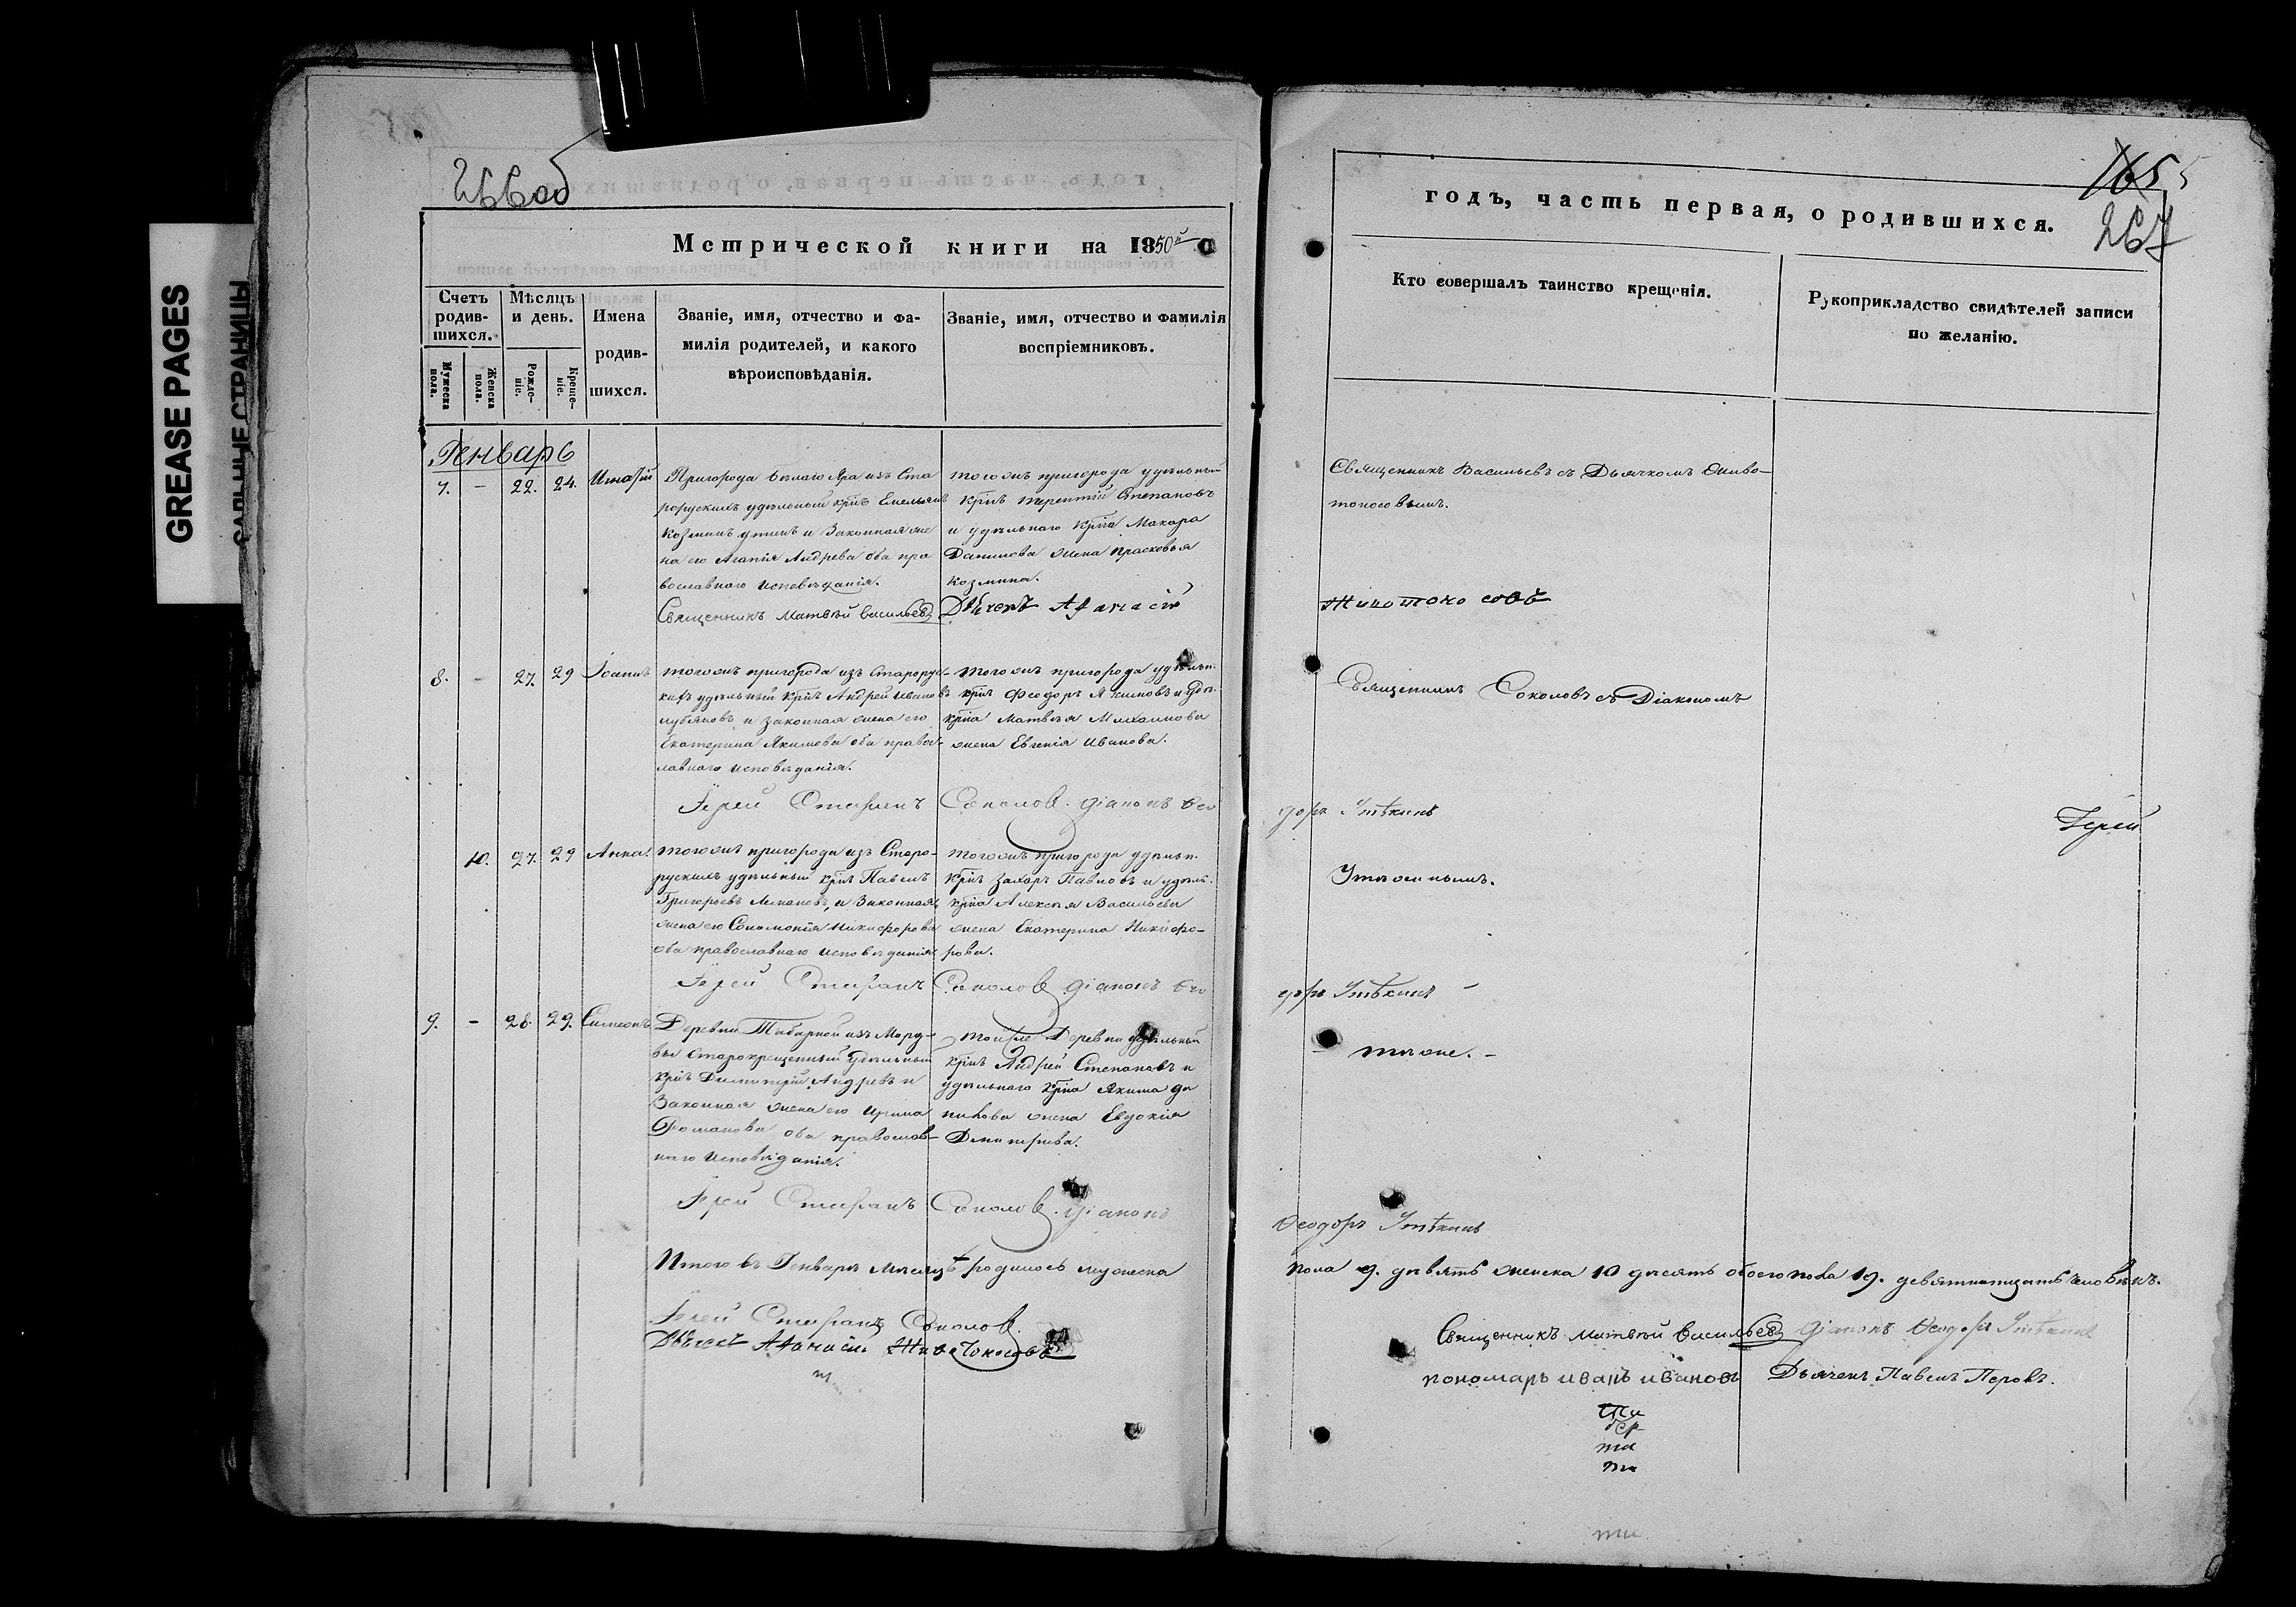 GREASE PAGES
САЛЬНЫЕ СТРАНИЦЫ
266об
Метрической книги на 1850й
Счетъ родив-
шихся.
Мужеска пола.
Женска пола.
Мѣсяцъ и день.
Рожде-
ніе.
Креще-
ніе.
Имена
родив-
шихся.
Званіе, имя, отчество и фа-
милія родителей, и какого
вѣроисповѣданія.
Званіе, имя, отчество и фамилія
воспріемниковъ.
Генварь
7. - 22. 24.
Пригорода Белаго Яра изъ Ста
рорускихъ удѣльный крнъ Емельянъ
Козминъ и Законная же
на его Агапія Андрева оба пра
вославнаго исповѣданія.
Священникъ Матвѣй Васильевъ
тогожъ пригорода удѣльный
крнъ терентій Степановъ
и удѣльнаго крна Макара
Данилова жена прасковья
козмина.
Дьячекъ Афанасій
8. - 27. 29 Іоаннъ
тогожъ пригорода изъ Старорус-
кихъ удѣльный крнъ Андрей Ивановъ
и законная жена его
Екатерина Якимова оба правос-
лавнаго исповѣданія.
Іерей Стефанъ Соколов. діаконъ Ѳео
тогожъ пригорода удѣльн.
крнъ Феодоръ Якимовъ и удѣ.
крна Матвѣя Михаилова
жена Евгенія Иванова.
10. 27. 29 Анна.
тогожъ пригорода изъ Старо-
рускихъ удѣльный крнъ Павелъ
Григорьевъ и Законная
жена его Соломонія Никифорова
оба православнаго исповѣданія.
Іерей Стефанъ Соколов діаконъ Ѳео
тогожъ пригорода удѣльн.
крнъ Захаръ Павловъ и удѣль.
крна Алексѣя Васильева
жена Екатерина Никифо-
рова.
9. - 28. 29. Симеонъ
Деревни изъ Морд-
вы Старокрещенный удѣльный
крнъ Димитрій Андрѣевъ и
Законная жена его Ирина
Романова оба православ-
наго исповѣданія.
Іерей Стефанъ Соколов. діаконъ
тойже Деревни удѣльный
крнъ Андрей Степановъ и
удѣльнаго крна Якима Да
нилова жена Евдокія
Дмитрева.
Итого въ Генварѣ мѣсяцѣ родилось мужеска
Іерей Стефанъ Соколов.
Дьячекъ Афанасій Животоносовъ
165
267
годъ, часть первая, о родившихся.
Кто совершалъ таинство крещенія.
Рукоприкладство свидѣтелей записи
по желанію.
Священникъ Васильевъ съ Дьячкомъ Живо-
тоносовымъ.
Животоносовъ
Священникъ Соколовъ съ Діакономъ
доръ Утѣкинъ
Іерей
доръ Утѣкинъ
- тѣ же. -
Ѳеодоръ Утѣкинъ
пола 9. девять женска 10 десять обоего пола 19. девятнатцать человѣкъ.
Священникъ Матвѣй Васильевъ діаконъ Ѳеодоръ Утѣкинъ
пономарь иванъ ивановъ Дьячекъ Павелъ Перовъ.